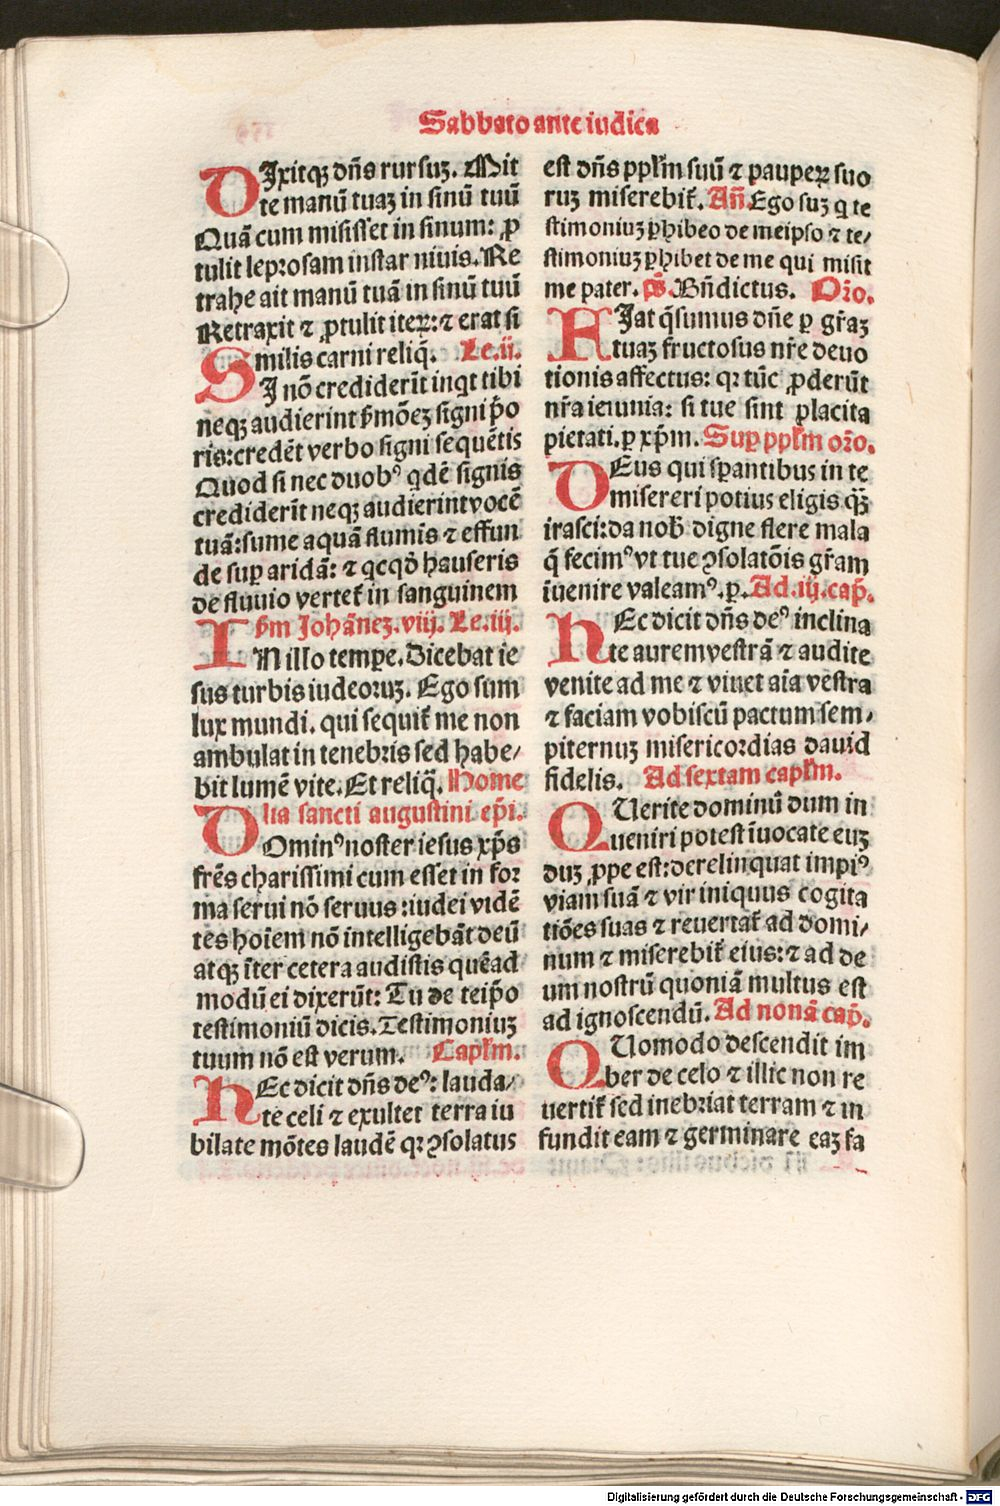 Sabbato ante iudica
DIxitqꝫ dn̄s rursuꝫ. Mit
te manū tuaꝫ in sinū tuū
Quā cum misisset in sinum: ꝓ
tulit leprosam instar niuis. Re
trahe ait manū tuā in sinū tuū
Retraxit ⁊ ꝓtulit iteꝝ: ⁊ erat si
milis carni reliq̄. Le.ii.
SI nō crediderīt inqt tibi
neqꝫ audierint ẜmōeꝫ signi p̄o
ris: credēt verbo signi sequētis
Quod si nec duobꝰ qdē signis
crediderīt neqꝫ audierint vocē
tuā: sume aquā flumīs ⁊ effun
de suꝑ aridā: ⁊ qcqd̄ hauseris
de fluuio vertet̄ in sanguinem
ẜm Johāneꝫ. viij. Le.iij.
IN illo tempe. Dicebat ie
sus turbis iudeoruꝫ. Ego sum
lux mundi. qui sequit̄ me non
ambulat in tenebris sed habe/
bit lumē vite. Et reliq̄. Home
lia sancti augustini ep̄i.
DOminꝰ noster iesus xp̄s
frēs charissimi cum esset in for
ma serui nō seruus: iudei vidē
tes hoīem nō intelligebāt deū
atqꝫ īter cetera audistis quēad
modū ei dixerūt: Tu de teip̄o
testimoniū dicis. Testimoniuꝫ
tuum nō est verum. Capl̄m.
HEc dicit dn̄s deꝰ: lauda/
te celi ⁊ exultet terra iu
bilate mōtes laudē qꝛ ꝯsolatus
est dn̄s ppl̄m suū ⁊ paupeꝝ suo
ruꝫ miserebit̄. An̄. Ego suꝫ q te
stimoniuꝫ ꝑhibeo de meipso ⁊ te/
stimoniuꝫ ꝑhibet de me qui misit
me pater. p̄s. Bn̄dictus. Oro.
FIat q̄sumus dn̄e ꝑ gr̄aꝫ
tuaꝫ fructosus nr̄e deuo
tionis affectus: qꝛ tūc ꝓderūt
nr̄a ieiunia: si tue sint placita
pietati. ꝑ xp̄m. Suꝑ ppl̄m oro.
DEus qui sꝑantibus in te
misereri potius eligis qꝫ̄
irasci: da nob̄ digne flere mala
q̄ fecimꝰ vt tue ꝯsolatōis gr̄am
īuenire valeamꝰ. ꝑ. Ad.iij.cap̄.
HEc dicit dn̄s deꝰ inclina
te aurem vestrā ⁊ audite
venite ad me ⁊ viuet aīa vestra
⁊ faciam vobiscū pactum sem/
piternuꝫ misericordias dauid
fidelis. Ad sextam capl̄m.
QUerite dominū dum in
ueniri potest īuocate euꝫ
duꝫ ꝓpe est: derelinquat impiꝰ
viam suā ⁊ vir iniquus cogita
tiōes suas ⁊ reuertat̄ ad domi/
num ⁊ miserebit̄ eius: ⁊ ad de
um nostrū quoniā multus est
ad ignoscendū. Ad nonā cap̄.
QUomodo descendit im
ber de celo ⁊ illic non re
uertit̄ sed inebriat terram ⁊ in
fundit eam ⁊ germinare eaꝫ fa
Digitalisierung gefördert durch die Deutsche Forschungsgemeinschaft - DFG